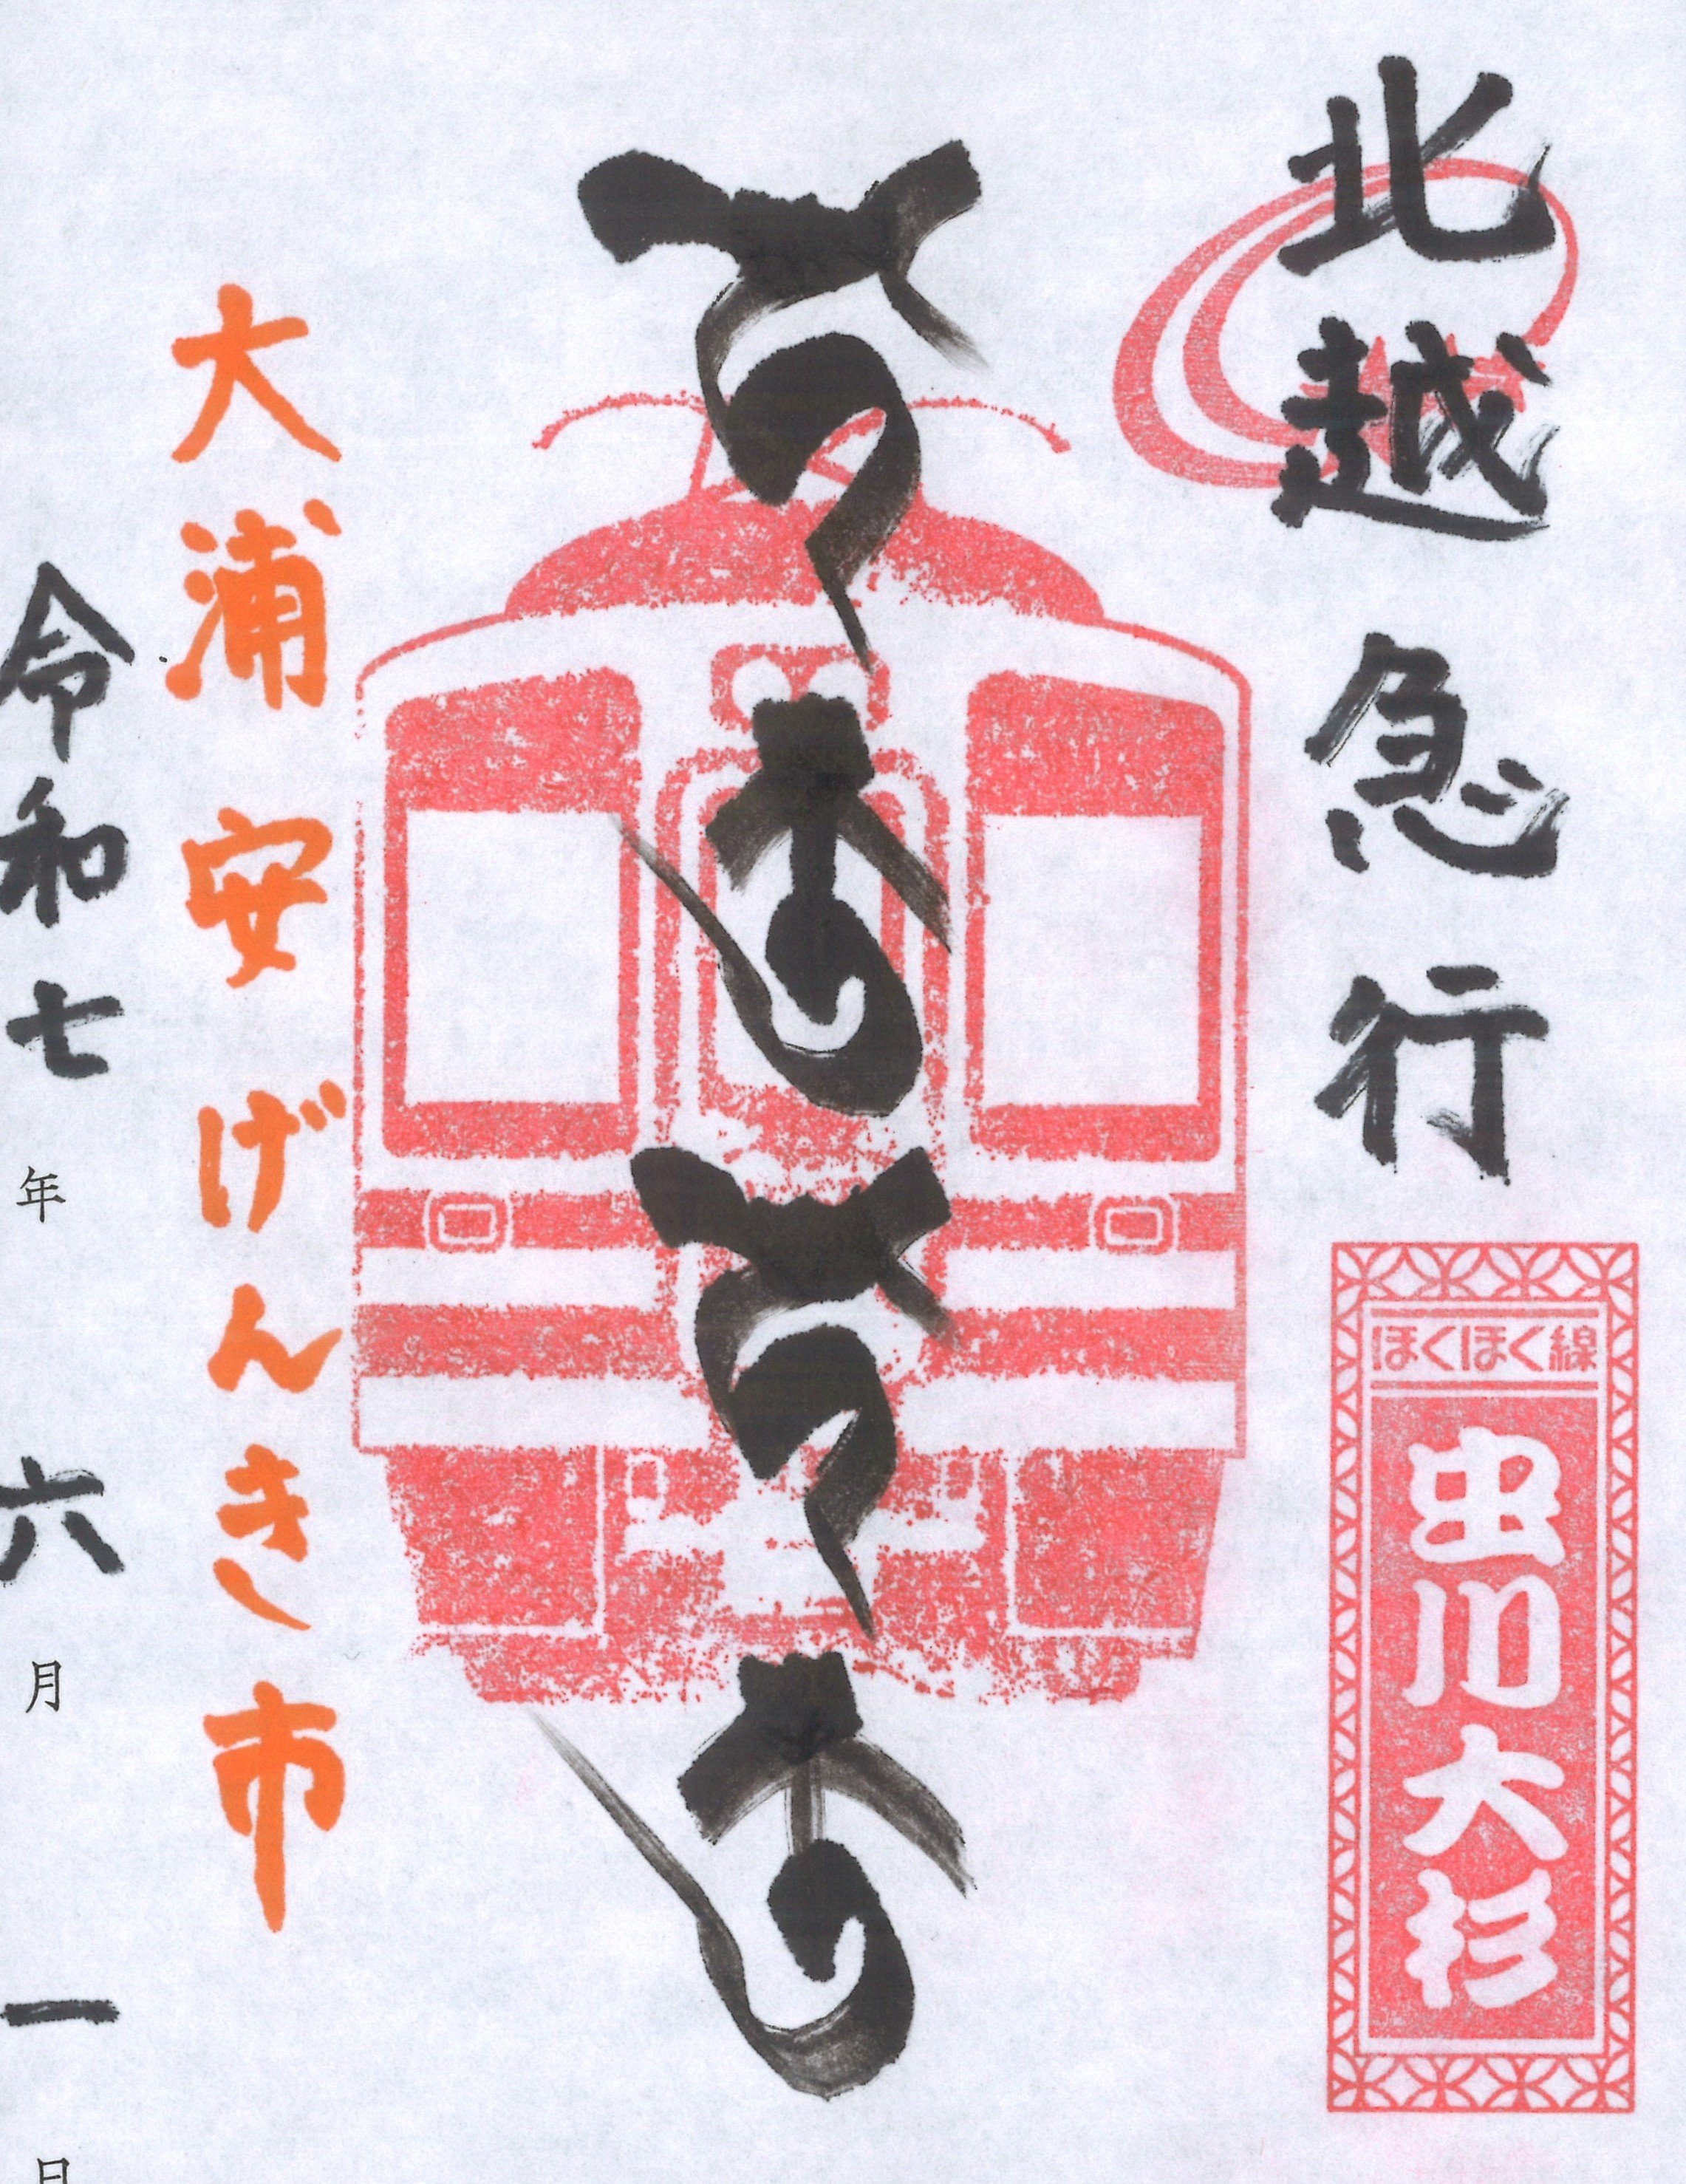 北越急行
ほくほく線
虫川大杉
大浦安げんき市
令和七年六月一日